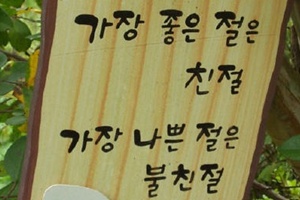 가장 좋은 절은
친절
가장 나쁜 절은
불친절